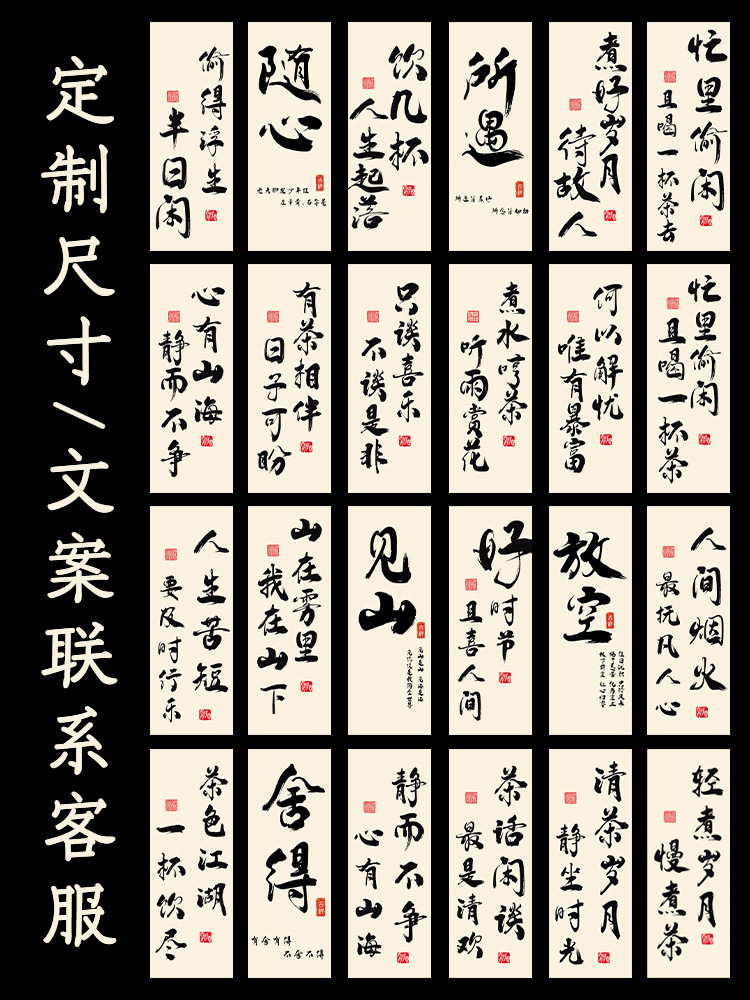 定制尺寸/文案联系客服
偷得浮生
半日闲
随心
饮几杯
人生起落
所遇
煮好岁月
待故人
忙里偷闲
且喝一杯茶去
心有山海
静而不争
有茶相伴
日子可盼
只谈喜乐
不谈是非
煮水哼茶
听雨赏花
何以解忧
唯有暴富
忙里偷闲
且喝一杯茶
人生苦短
要及时行乐
山在雾里
我在山下
见山
好时节
且喜人间
放空
人间烟火
最抚凡人心
茶色江湖
一杯饮尽
舍得
有舍有得
不舍不得
静而不争
心有山海
茶话闲谈
最是清欢
清茶岁月
静坐时光
轻煮岁月
慢煮茶